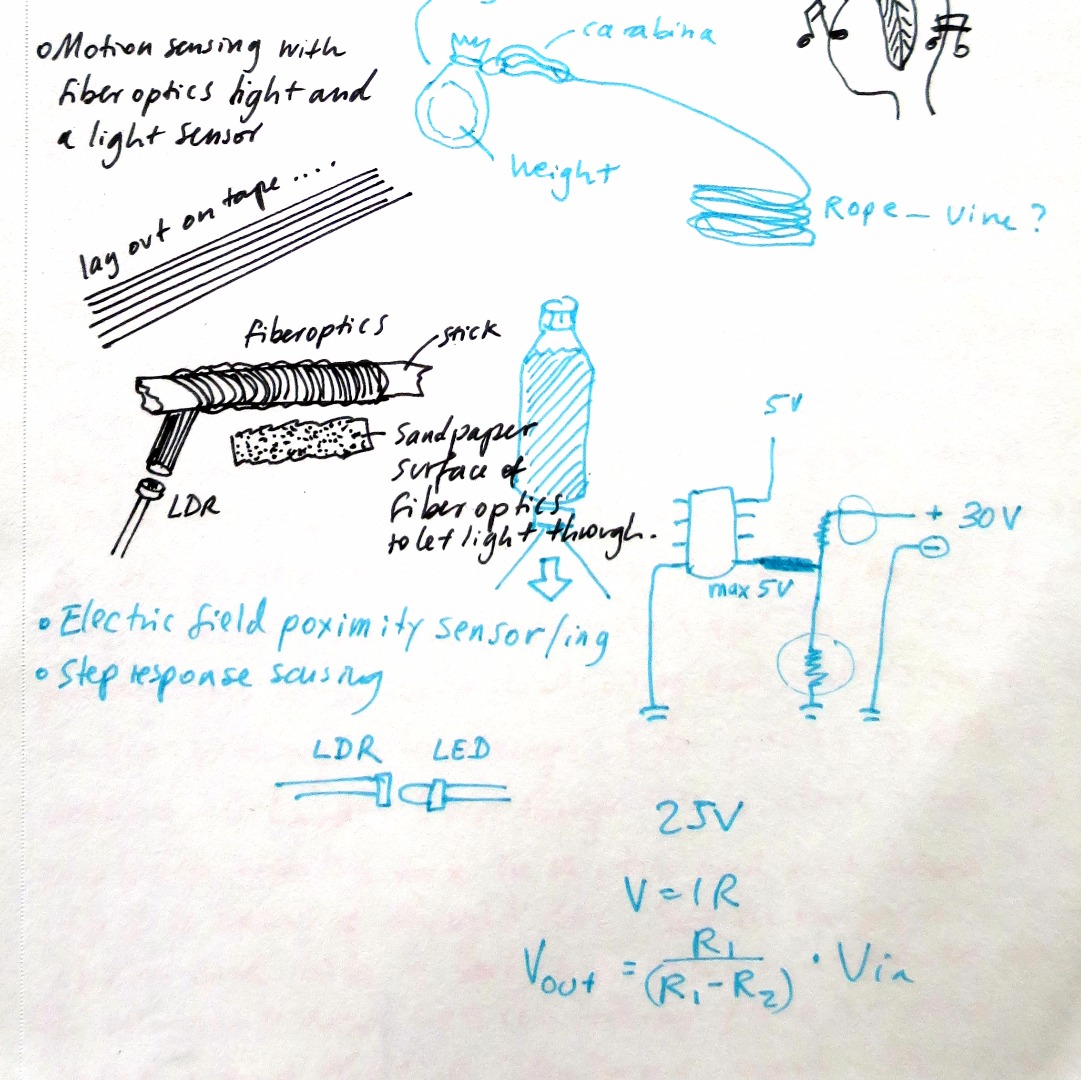 carabina
oMotion sensing with
fiber optics light and
a light sensor
weight
lay out on tape ....
Rope - Vine?
fiberoptics
stick
sandpaper
surface of
fiber optics
to let light through.
LDR
5V
+ 30V
-
max 5V
• Electric field poximity sensor/ing
o Step response sensing
LDR LED
25V
V=IR
Vout = R1/(R1-R2) · Vin